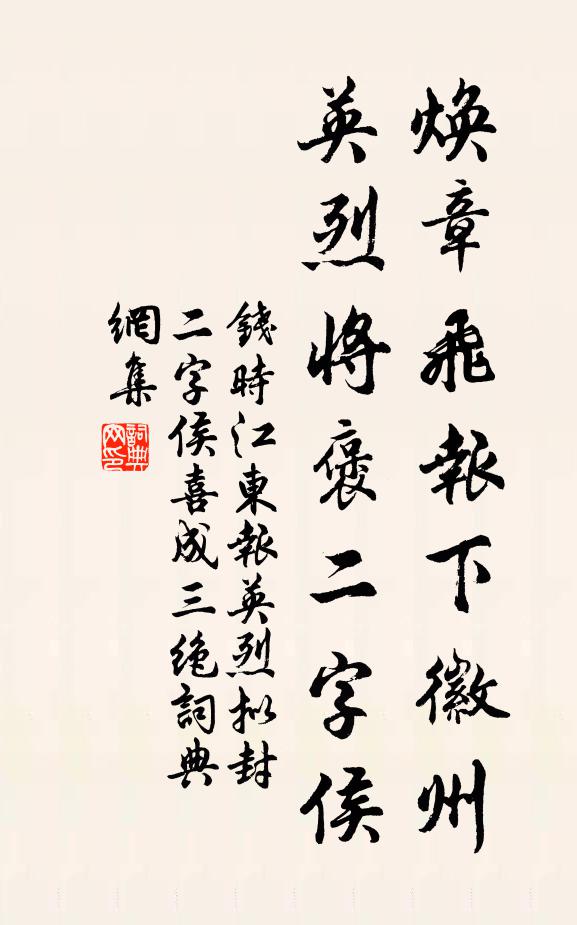 煥章飛報下徽州
英烈將褒二字侯
錢時江東報英烈擬封
二字侯喜成三絕詞典
網集
詞典網印